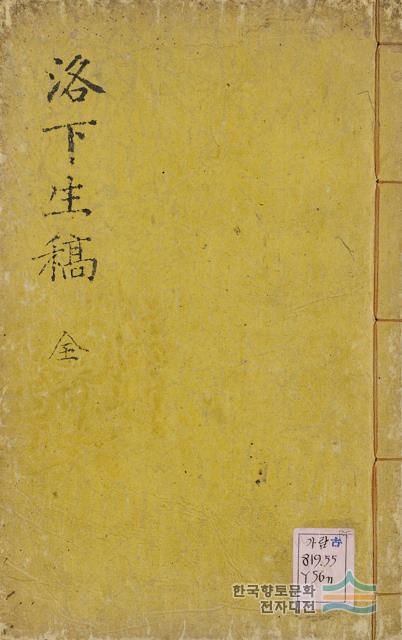 洛下生稿
全
가람古
819.55
Y56n
한국향토문화
전자대전